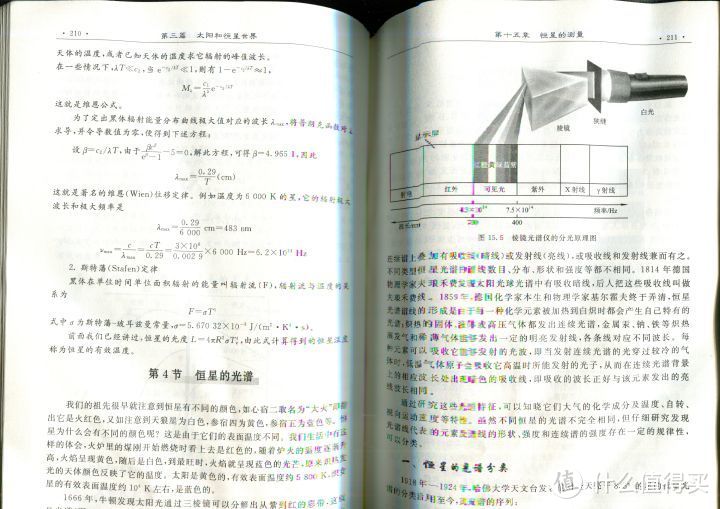 · 210 ·
第三篇 太阳和恒星世界
天体的温度,或者已知天体的温度求它辐射的峰值波长。
在一些情况下,λT≪c₂,当 e^(-c₂/λT)≪1,则有 1-e^(-c₂/λT)≈1,
这就是维恩公式。
为了定出黑体辐射能量分布曲线极大值对应的波长 λmax,将普朗克函数对 λ
求导,并令导数值为零,便得到下述方程:
=0,解此方程,可得 β=4.965 1,因此
λmax=0.29/T(cm)
这就是著名的维恩(Wien)位移定律。例如温度为 6 000 K 的星,它的辐射极大
波长和极大频率是
λmax=0.29/6 000 cm=483 nm
νmax=c/λmax=cT/0.29=3×10⁸/0.002 9×6 000 Hz=6.2×10¹⁴ Hz
2. 斯特藩(Stafen)定律
黑体在单位时间单位面积辐射的能量叫辐射流(F),辐射流与温度的关
系为
F=σT⁴
式中 σ 为斯特藩-玻耳兹曼常量,σ=5.670 32×10⁻⁸ J/(m²·K⁴·s)。
前面我们已经讲过,恒星的光度 L=4πR²σT⁴,由此式计算得到的恒星温度
称为恒星的有效温度。
第4节 恒星的光谱
我们的祖先很早就注意到恒星有不同的颜色,如心宿二取名为“大火”
出它是火红色,又如注意到天狼星为白色,参宿四为黄色,参宿五为蓝色等。恒
星为什么会有不同的颜色呢?这是由于它们的表面温度不同。我们生活中有这
样的体会,火炉里的煤刚开始燃烧时看上去是红色的,随着炉火的温度逐渐升
高,火焰呈现黄色,随后是白色,到最旺时,火焰就呈现蓝色的光芒。
光的天体颜色反映了它的温度。太阳是黄色的,有效表面温度约 5 800 K,
星的有效表面温度约 10⁴ K 左右,是蓝色的。
1666 年,牛顿发现太阳光通过三棱镜可以分解出从紫到红的彩带,这
第十五章 恒星的测量
· 211 ·
白光
狭缝
棱镜
显示屏
射电
红外
可见光
紫外
X 射线
γ 射线
7.5×10¹⁴
频率/Hz
400
图 15.5 棱镜光谱仪的分光原理图
在绿谱上叠加有吸收线(暗线)或发射线(亮线),或吸收线和发射线兼而有之。
不同类型恒星光谱的谱线数目、分布、形状和强度等都不相同。1814 年德国
物理学家夫琅禾费发现太阳光球光谱中有吸收暗线,后人把这些吸收线叫做
夫琅禾费线。1859年,德国化学家本生和物理学家基尔霍夫终于弄清,恒星
光谱谱线的形成是由于每一种化学元素被加热到白炽时都会产生自己特有的
光谱;炽热的固体、液体或高压气体都发出连续光谱,金属汞、钠、铁等炽热
蒸发气和稀薄气体能够发出一定的明亮发射线,各条线对应不同波长。每
种元素可以吸收它能够发射的光波,即当发射连续光谱的光穿过较冷的气
体时,低温气体原子会吸收它高温时所能发射的光子,从而在连续光谱背景
上的相应波长处出现暗色的吸收线,即吸收的波长正好与该元素发出的亮
线波长相同。
通过研究这些光谱特征,可以知晓它们大气的化学成分及温度、自转、
视向运动速度等特性。虽然不同恒星的光谱不完全相同,但仔细研究发现
光谱线代表的元素及谱线的形状、强度和连续谱的强度存在一定的规律性,
可以分类。
一、恒星的光谱分类
1918 年—1924 年,哈佛大学天文台发
的分类沿用至今,光谱的序列:
值 什么值得买